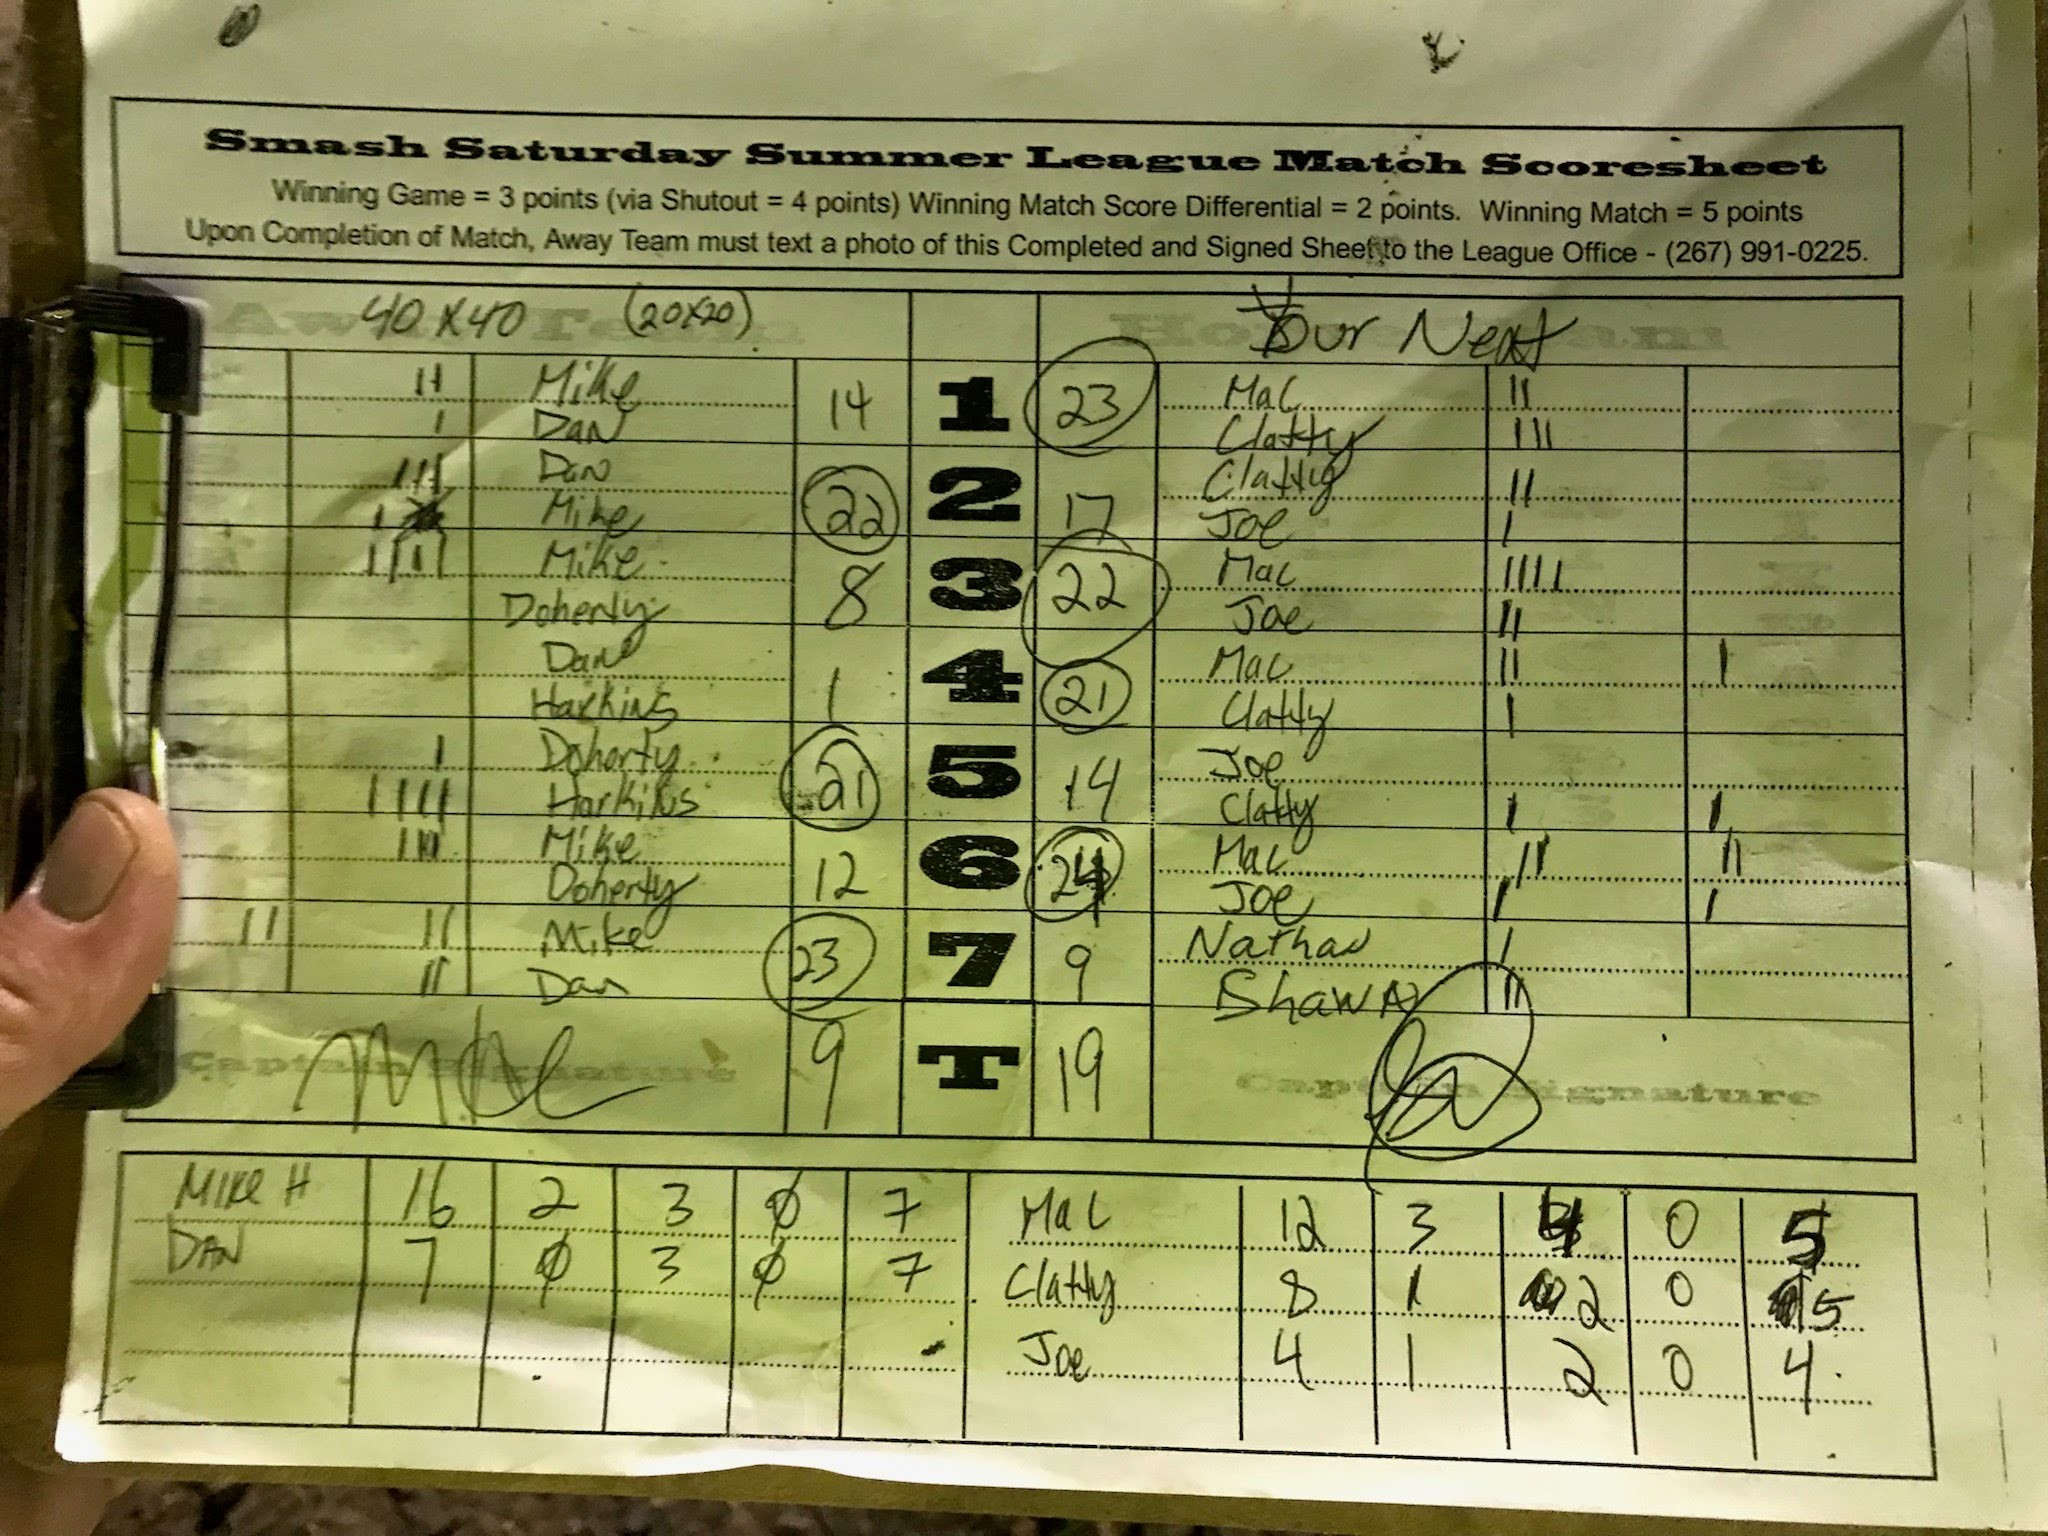 Smash Saturday Summer League Match Scoresheet
Winning Game = 3 points (via Shutout = 4 points) Winning Match Score Differential = 2 points. Winning Match = 5 points
Upon Completion of Match, Away Team must text a photo of this Completed and Signed Sheet to the League Office - (267) 991-0225.
40 x 40 (20x20) Your Next
Mike 14 1 23 Mac
Dan Clatty
Dan 22 2 17 Clatty
Mike Joe
Mike 8 3 22 Mac
Doherty Joe
Dan 1 4 21 Mac
Harkins Clatty
Doherty 21 5 14 Joe
Harkins Clatty
Mike 12 6 24 Mac
Doherty Joe
Mike 23 7 9 Nathan
Dan Shawn
Captain Signature 9 T 19 Captain Signature
Mike H 16 2 3 0 7 Mac 12 3 0 5
Dan 7 0 3 0 7 Clatty 8 1 2 0 5
Joe 4 1 2 0 4